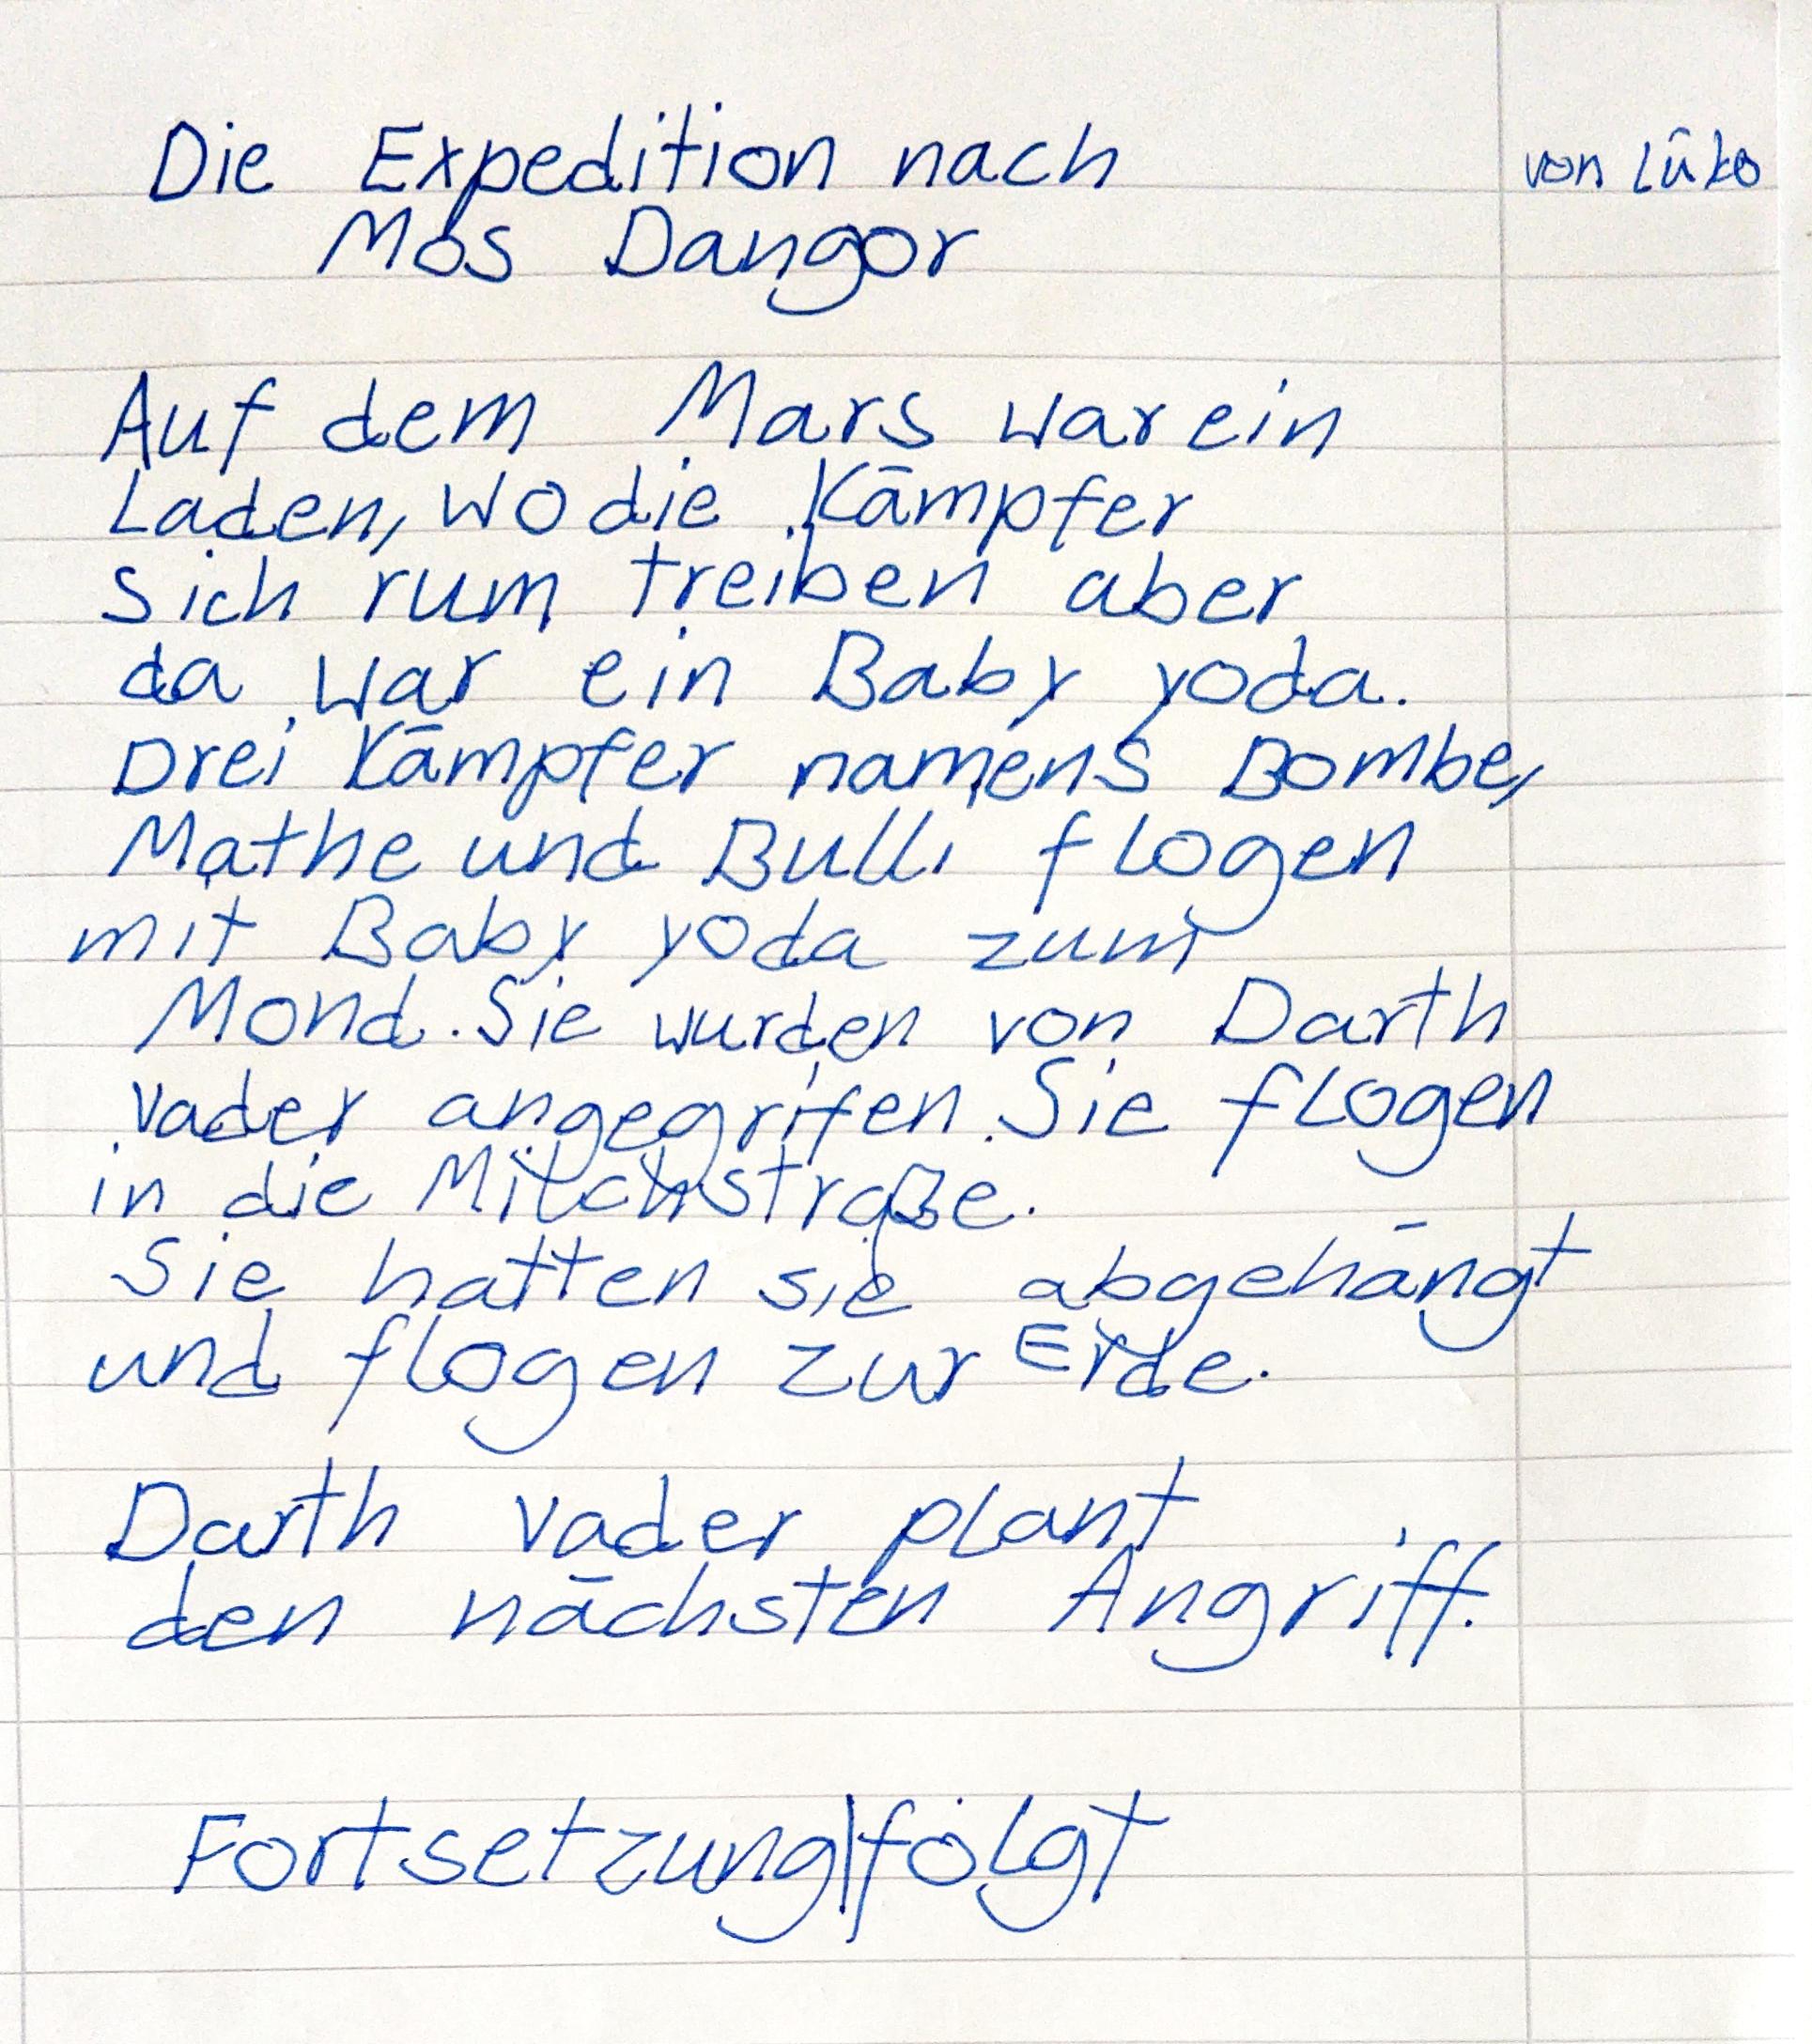 Die Expedition nach
von Lüko
Mos Dangor
Auf dem Mars war ein
Laden, wo die Kämpfer
sich rum treiben aber
da war ein Baby yoda.
Drei Kämpfer namens Bombe,
Mathe und Bulli flogen
mit Baby yoda zum
Mond. Sie wurden von Darth
vader angegrifen. Sie flogen
in die Milchstraße.
Sie hatten sie abgehängt
und flogen zur Erde.
Darth vader plant
den nächsten Angriff.
Fortsetzung|folgt